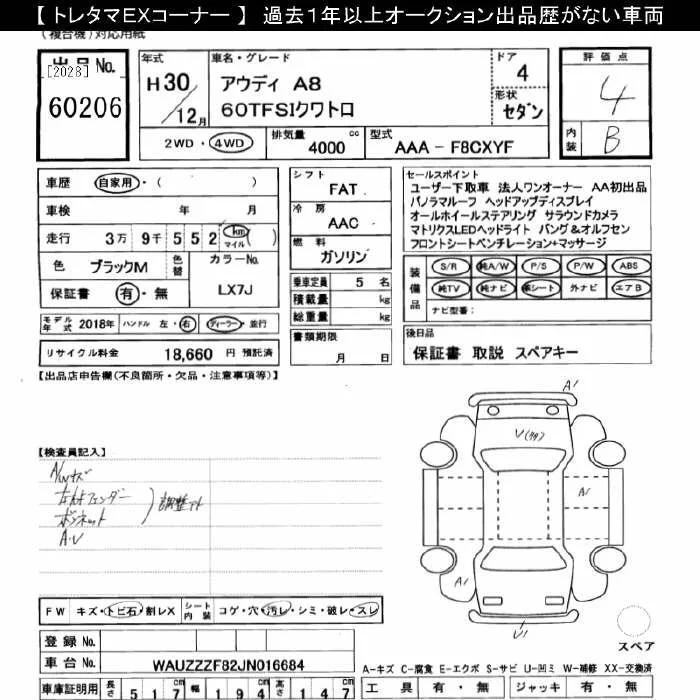 【 トレタマEXコーナー 】 過去1年以上オークション出品歴がない車両
(複合機)対応用紙
出品No.
[2028]
60206
年式
H30/12月
車名・グレード
アウディ A8
60TFSIクワトロ
ドア
4
形状
セダン
評価点
4
内装
B
2WD・4WD
排気量
4000 cc
型式
AAA - F8CXYF
車歴 自家用・( )
車検 年 月
走行 3万 9千 5 5 2 km マイル ( )
色 ブラックM 色替
カラーNo.
LX7J
保証書 有・無
モデル年式 2018年 ハンドル 左・右 ディーラー・並行
リサイクル料金 18,660 円 預託済
シフト
FAT
冷房
AAC
燃料
ガソリン
乗車定員 5 名
積載量 kg
総重量 kg
書類期限
月 日
セールスポイント
ユーザー下取車 法人ワンオーナー AA初出品
パノラマルーフ ヘッドアップディスプレイ
オールホイールステアリング サラウンドカメラ
マトリクスLEDヘッドライト バング&オルフセン
フロントシートベンチレーション+マッサージ
装備品
S/R 純A/W P/S P/W ABS
純TV 純ナビ 革シート 外ナビ エアB
ナビ型番:
後日品
保証書 取説 スペアキー
【出品店申告欄(不良箇所・欠品・注意事項等)】
【検査員記入】
A/Wキズ
ボンネット
A・U
A1
A1
A1
スペア
FW キズ・トビ石・割レX
シート内装 コゲ・穴・汚レ・シミ・破レ・スレ
登録No.
車台No. WAUZZZF82JN016684
車庫証明用 長さ 517cm 幅 194cm 高さ 147cm
A-キズ C-腐食 E-エクボ S-サビ U-凹ミ W-補修 XX-交換済
工具 有・無 ジャッキ 有・無